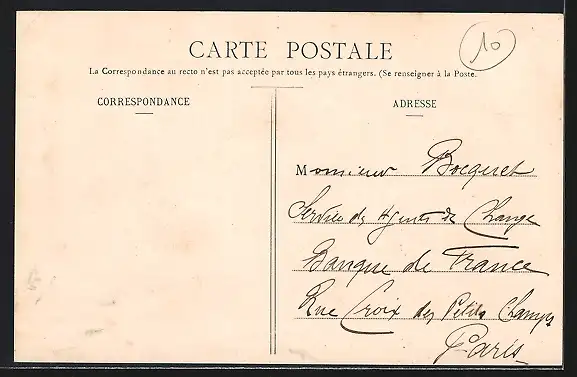 10
CARTE POSTALE
La Correspondance au recto n'est pas acceptée par tous les pays étrangers. (Se renseigner à la Poste.
CORRESPONDANCE
ADRESSE
Monsieur Bocquet
Service des Agents de Change
Banque de France
Rue Croix des Petits Champs
Paris